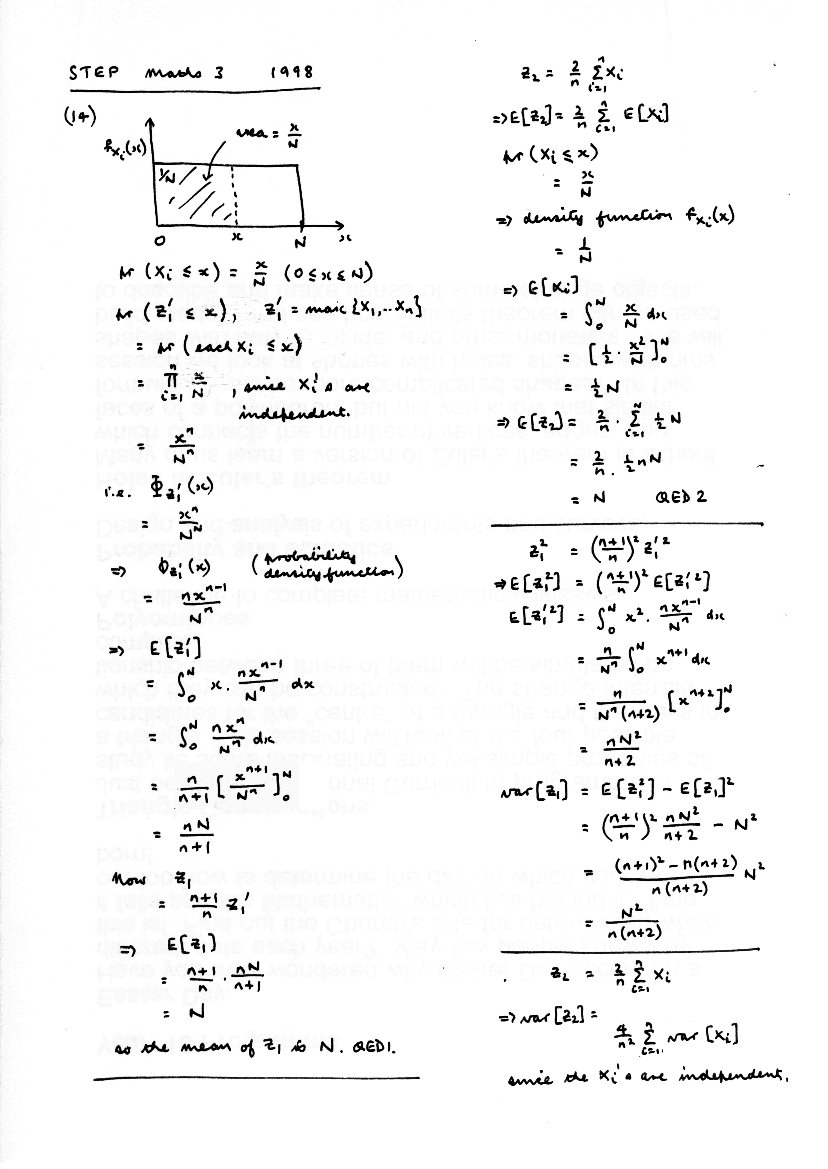 STEP maths 3 1998
(14)
f_{X_i}(x)
area = x/N
1/N
0 x N x
pr (X_i ≤ x) = x/N (0 ≤ x ≤ N)
pr (Z_1' ≤ x), Z_1' = max {X_1, ... X_n}
= pr (each X_i ≤ x)
= ∏_{i=1}^{n} x/N, since X_i's are
independent.
= x^n/N^n
i.e. Φ_{Z_1'}(x)
= x^n/N^n
⇒ ϕ_{Z_1'}(x) (probability
density function)
= nx^{n-1}/N^n
⇒ E[Z_1']
= ∫_0^N x. nx^{n-1}/N^n dx
= ∫_0^N nx^n/N^n dx
= n/n+1 [x^{n+1}/N^n]_0^N
= nN/n+1
Now Z_1
= n+1/n Z_1'
⇒ E[Z_1]
= n+1/n . nN/n+1
= N
so the mean of Z_1 is N. QED1.
Z_2 = 2/n ∑_{i=1}^{n} X_i
⇒ E[Z_2] = 2/n ∑_{i=1}^{n} E[X_i]
pr (X_i ≤ x)
= x/N
⇒ density function f_{X_i}(x)
= 1/N
⇒ E[X_i]
= ∫_0^N x/N dx
= [1/2 . x^2/N]_0^N
= 1/2 N
⇒ E[Z_2] = 2/n . ∑_{i=1}^{n} 1/2 N
= 2/n . 1/2 nN
= N QED 2
Z_1^2 = (n+1/n)^2 Z_1'^2
⇒ E[Z_1^2] = (n+1/n)^2 E[Z_1'^2]
E[Z_1'^2] = ∫_0^N x^2. nx^{n-1}/N^n dx
= n/N^n ∫_0^N x^{n+1} dx
= n/N^n(n+2) [x^{n+2}]_0^N
= nN^2/n+2
var[Z_1] = E[Z_1^2] - E[Z_1]^2
= (n+1/n)^2 nN^2/n+2 - N^2
= (n+1)^2 - n(n+2)/n(n+2) N^2
= N^2/n(n+2)
Z_2 = 2/n ∑_{i=1}^{n} X_i
⇒ var[Z_2] =
4/n^2 ∑_{i=1}^{n} var [X_i]
since the X_i's are independent.